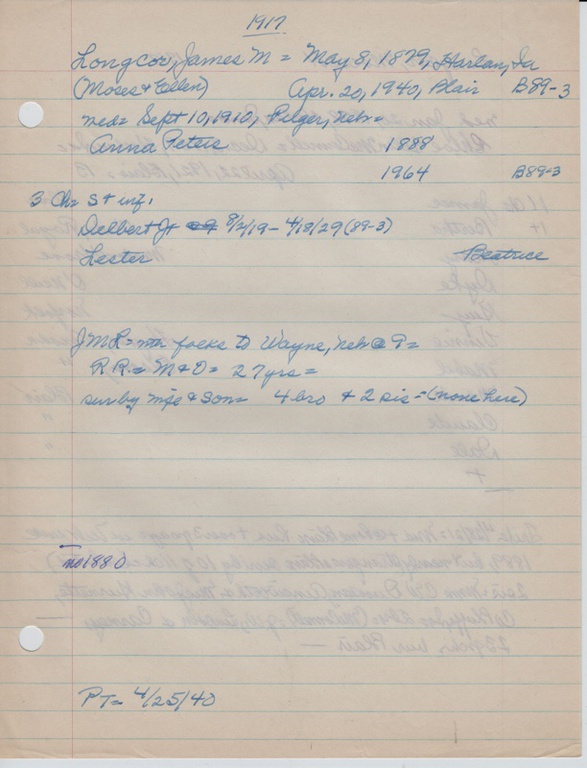 1917
Longcor, James M = May 8, 1879, Harlan, Ia
(Moses + Ellen) Apr. 20, 1940, Blair B89-3
med= Sept 10, 1910, Pilger, Neb=
Anna Peters 1888
1964 B89-3
3 Ch= S + inf.
Delbert Jr 8/2/19 - 4/18/29 (89-3)
Lester Beatrice
JML = folks to Wayne, Neb @ 9=
RR= M & O= 27 yrs=
sur by wife & son= 4 bro + 2 sis = (none here)
no 1880
PT= 4/25/40